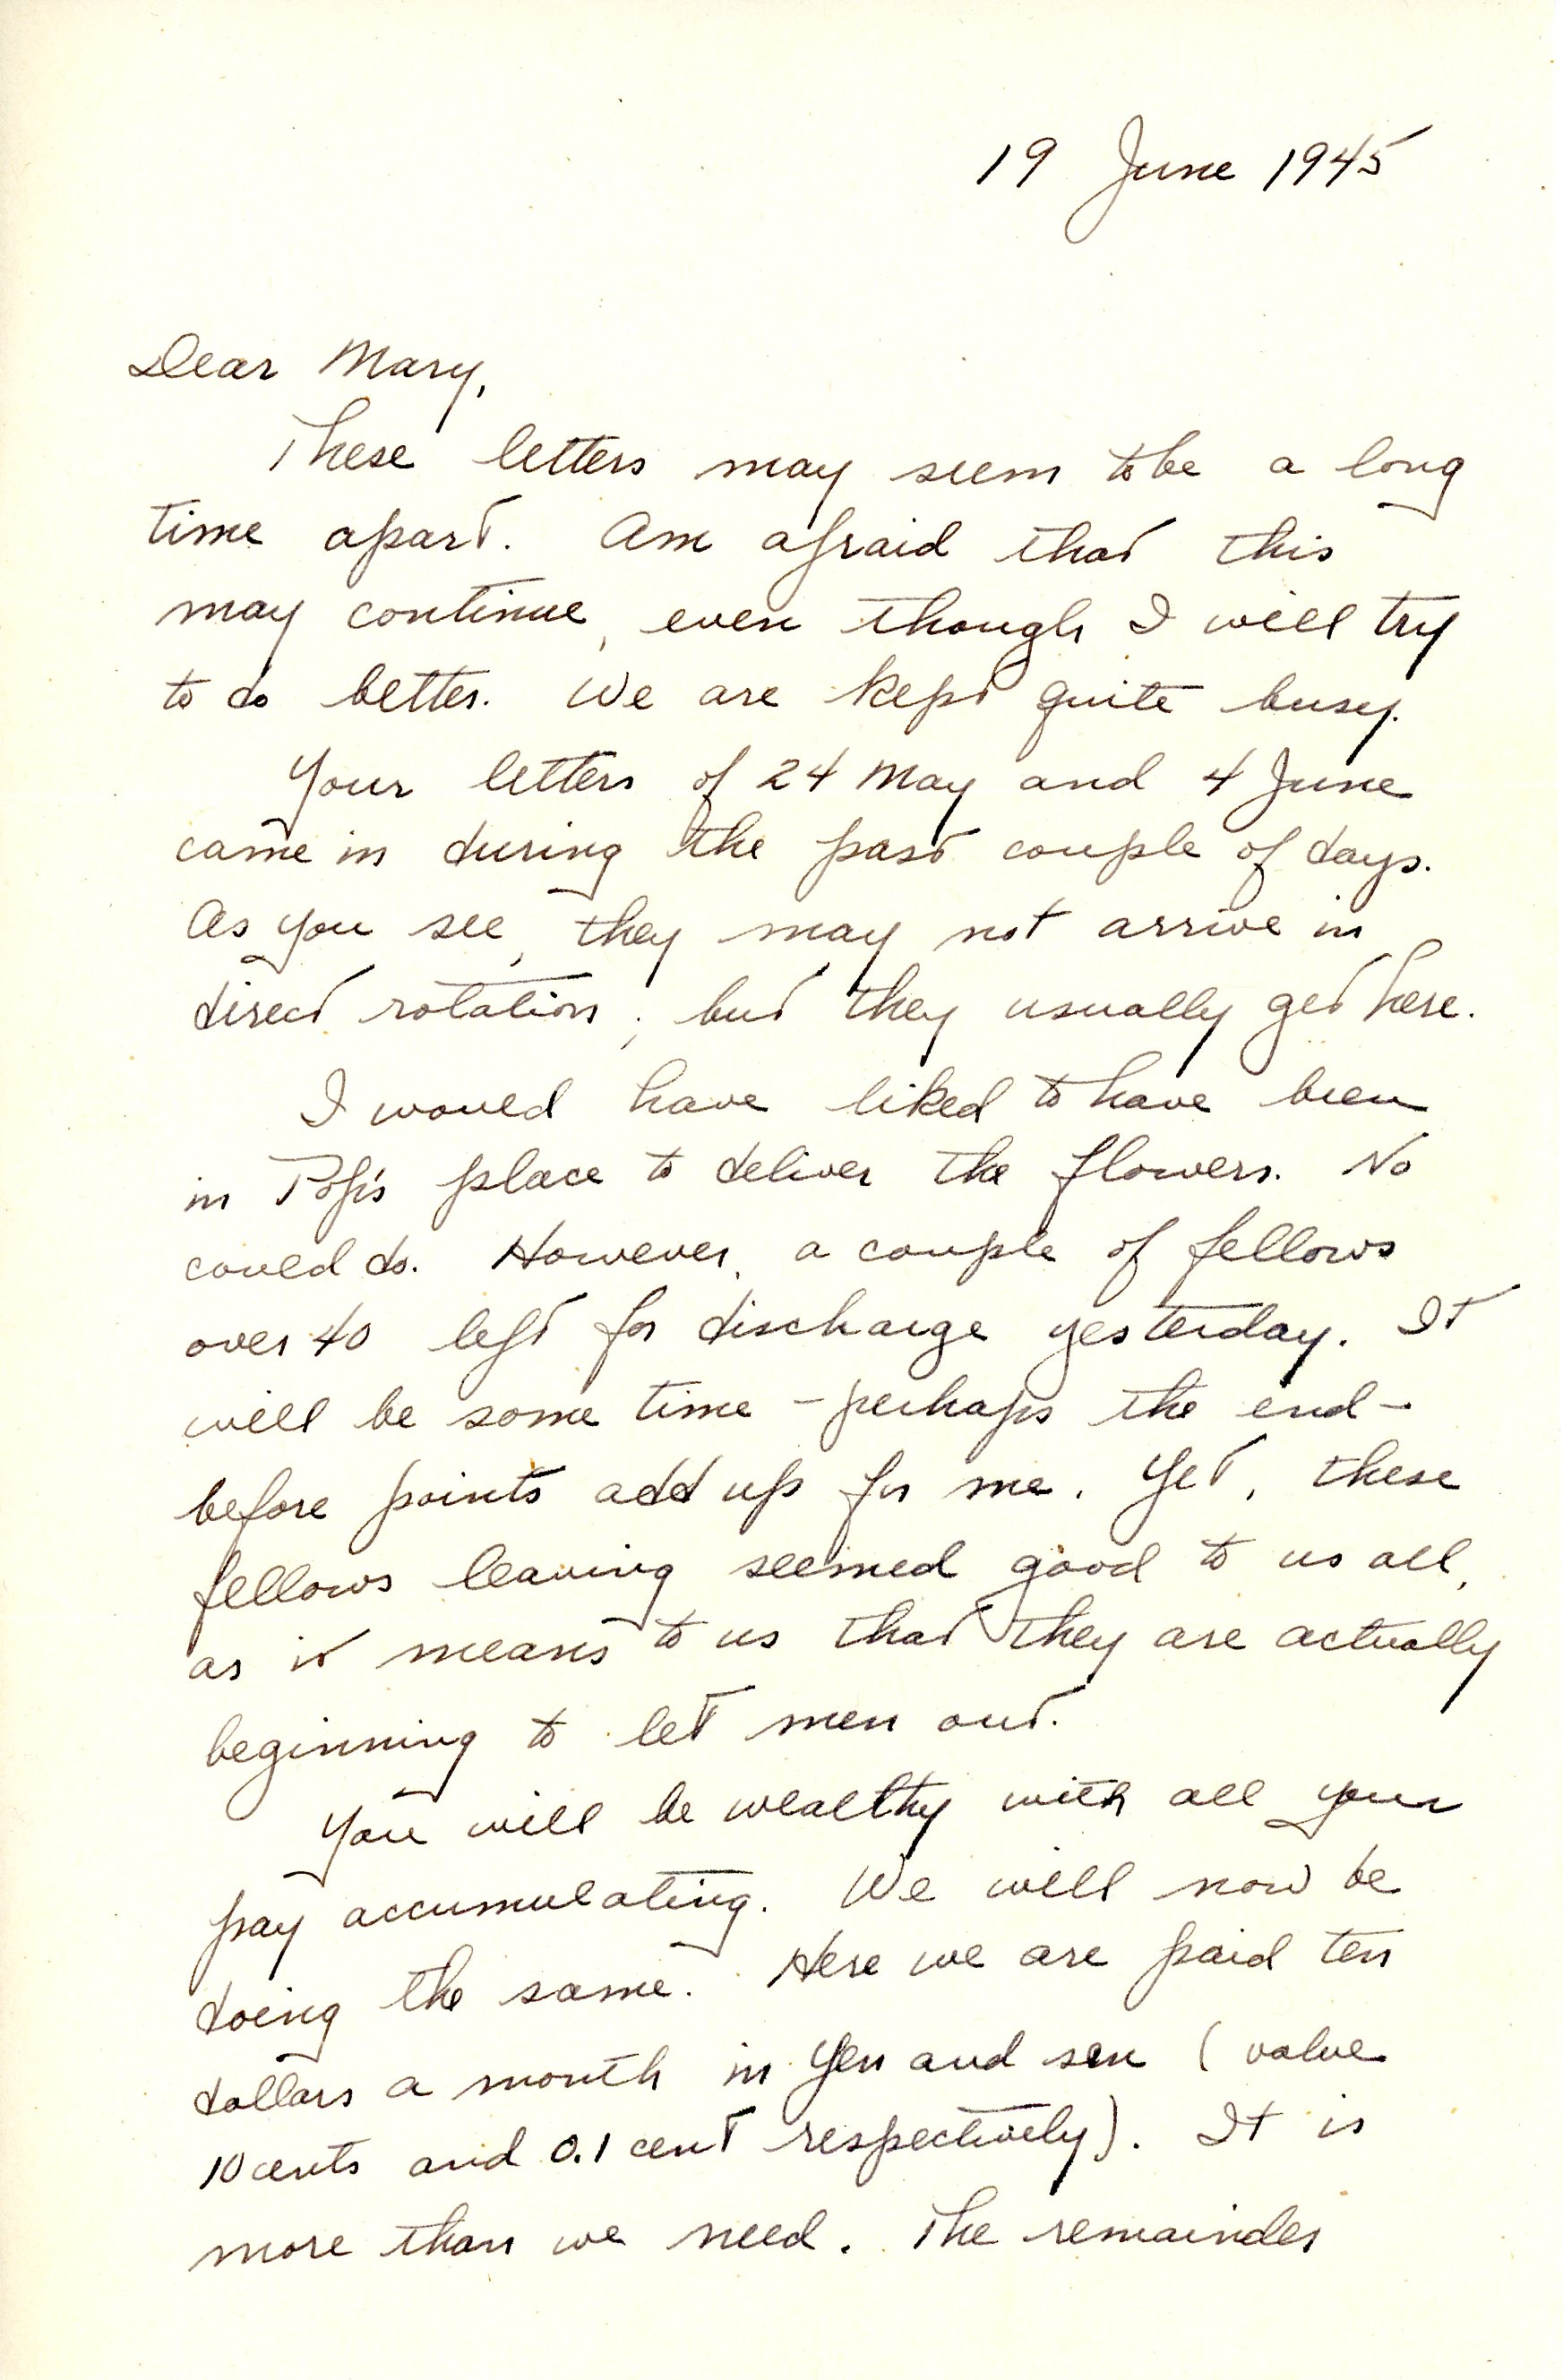 19 June 1945
Dear Mary,
These letters may seem to be a long
time apart. Am afraid that this
may continue, even though I will try
to do better. We are kept quite busy.
Your letters of 24 May and 4 June
came in during the past couple of days.
As you see, they may not arrive in
direct rotation; but they usually get here.
I would have liked to have been
in Pop's place to deliver the flowers. No
could do. However, a couple of fellows
over 40 left for discharge yesterday. It
will be some time - perhaps the end -
before points add up for me. Yet, these
fellows leaving seemed good to us all,
as it means to us that they are actually
beginning to let men out.
You will be wealthy with all your
pay accumulating. We will now be
doing the same. Here we are paid ten
dollars a month in Yen and sen (value
10 cents and 0.1 cent respectively). It is
more than we need. The remainder